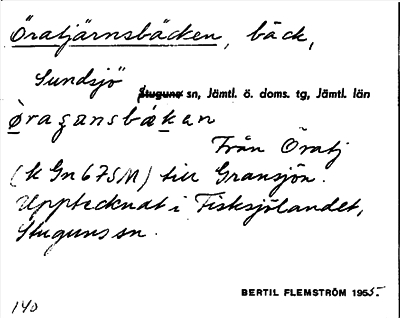 Öratjärnsbäcken, bäck,
Sundsjö
Stuguns sn, Jämtl. ö. doms. tg, Jämtl. län
Från Öratj
(k Gn 67SM) till Gransjön.
Upptecknat i Fisksjölandet,
Stuguns sn.
BERTIL FLEMSTRÖM 1955.
140